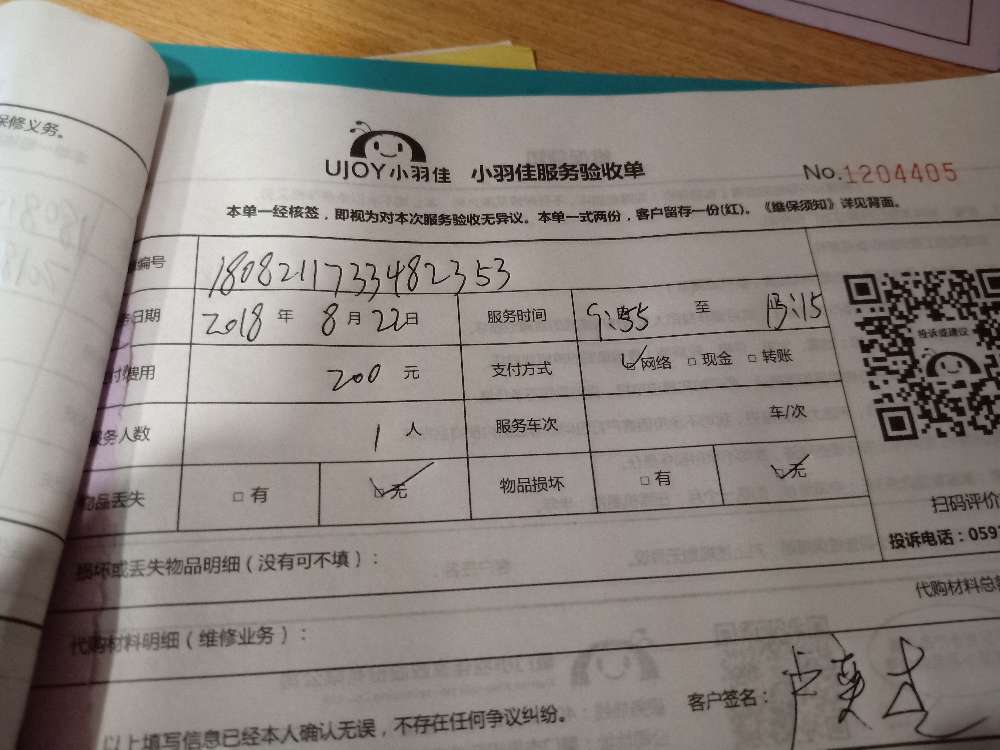 保修义务。
UJOY小羽佳 小羽佳服务验收单 No.1204405
本单一经核签，即视为对本次服务验收无异议。本单一式两份，客户留存一份(红)。《维保须知》详见背面。
编号 180821173348 2353
日期 2018 年 8 月 22 日 服务时间 9:55 至 13:15
费用 200 元 支付方式 □网络 □现金 □转账
服务人数 1 人 服务车次 车/次
物品丢失 □有 □无 物品损坏 □有 □无
投诉或建议
扫码评价
投诉电话：059
损坏或丢失物品明细（没有可不填）：
代购材料总
代购材料明细（维修业务）：
客户签名：
以上填写信息已经本人确认无误，不存在任何争议纠纷。